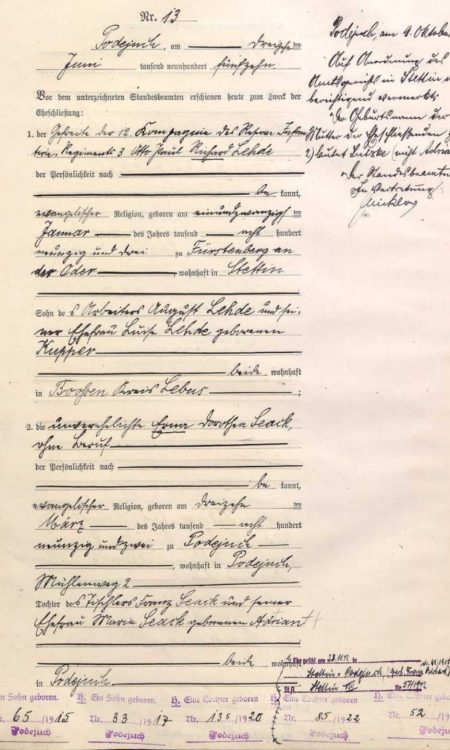 Nr. 13
Podejuch, am dreizehnten
Juni tausend neunhundert fünfzehn.
Vor dem unterzeichneten Standesbeamten erschienen heute zum Zweck der
Eheschließung:
1. der Gefreite der 12. Kompagnie des Reserve Infan-
terie Regiments 3 Otto Paul Richard Lehde
der Persönlichkeit nach
be kannt,
evangelischer Religion, geboren am einundzwanzigsten
Januar des Jahres tausend acht hundert
neunzig und drei zu Fürstenberg an
der Oder, wohnhaft in Stettin
Sohn des Arbeiters August Lehde und sei-
ner Ehefrau Luise Lehde geborenen
Kupper
beide wohnhaft
in Boossen Kreis Lebus
2. die unverehelichte Erna Dorothea Seack,
ohne Beruf
der Persönlichkeit nach
be kannt,
evangelischer Religion, geboren am dreizehnten
März des Jahres tausend acht hundert
neunzig und zwei zu Podejuch
, wohnhaft in Podejuch,
Mühlenweg 2
Tochter des Tischlers Franz Seack und seiner
Ehefrau Marie Seack geborenen Adrian
beide wohnhaft
in Podejuch
Podejuch, am 9. Oktober
Auf Anordnung des
Amtsgerichts in Stettin
berichtigend vermerkt:
Der Geburtsname der
Mutter der Eheschließenden zu
2) lautet (nicht Adrian
Der Standesbeamte
In Vertretung
Ein Sohn geboren.
Nr. 65/1915
Podejuch
H. Ein Sohn geboren.
Nr. 33/1917
Podejuch
H. Eine Tochter geboren.
Nr. 136/1920
Podejuch
H. Eine Tochter geboren
Nr. 85/1922
Podejuch
Nr. 52
Podejuch